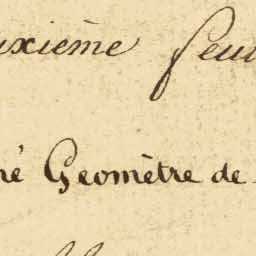 uxième feui
né Géomètre de